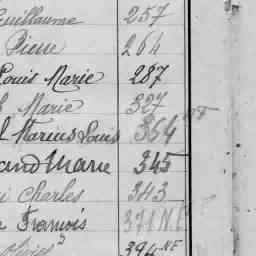 Guillaume 257
Pierre 264
Louis Marie 287
Marie 327
Marius Louis 364
and Marie 345
Charles 343
François 371 NE
Olivier 394 NE